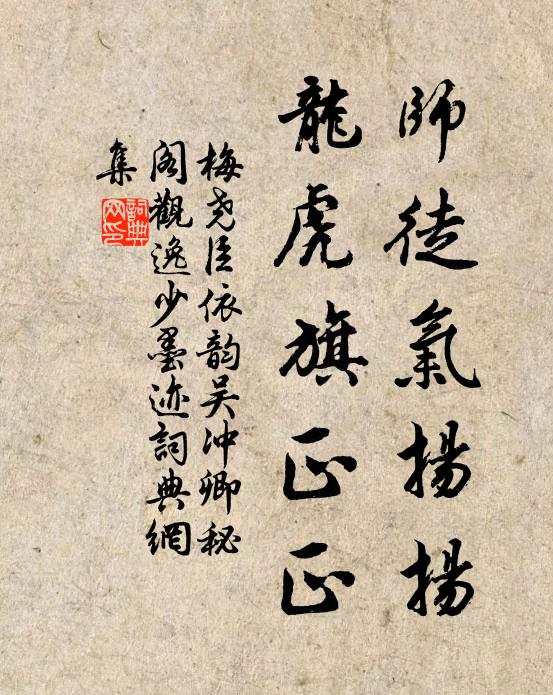 師徒氣揚揚
龍虎旗正正
梅尧臣依韵吴冲卿秘
阁觀逸少墨迹詞典網
集
詞典
网印